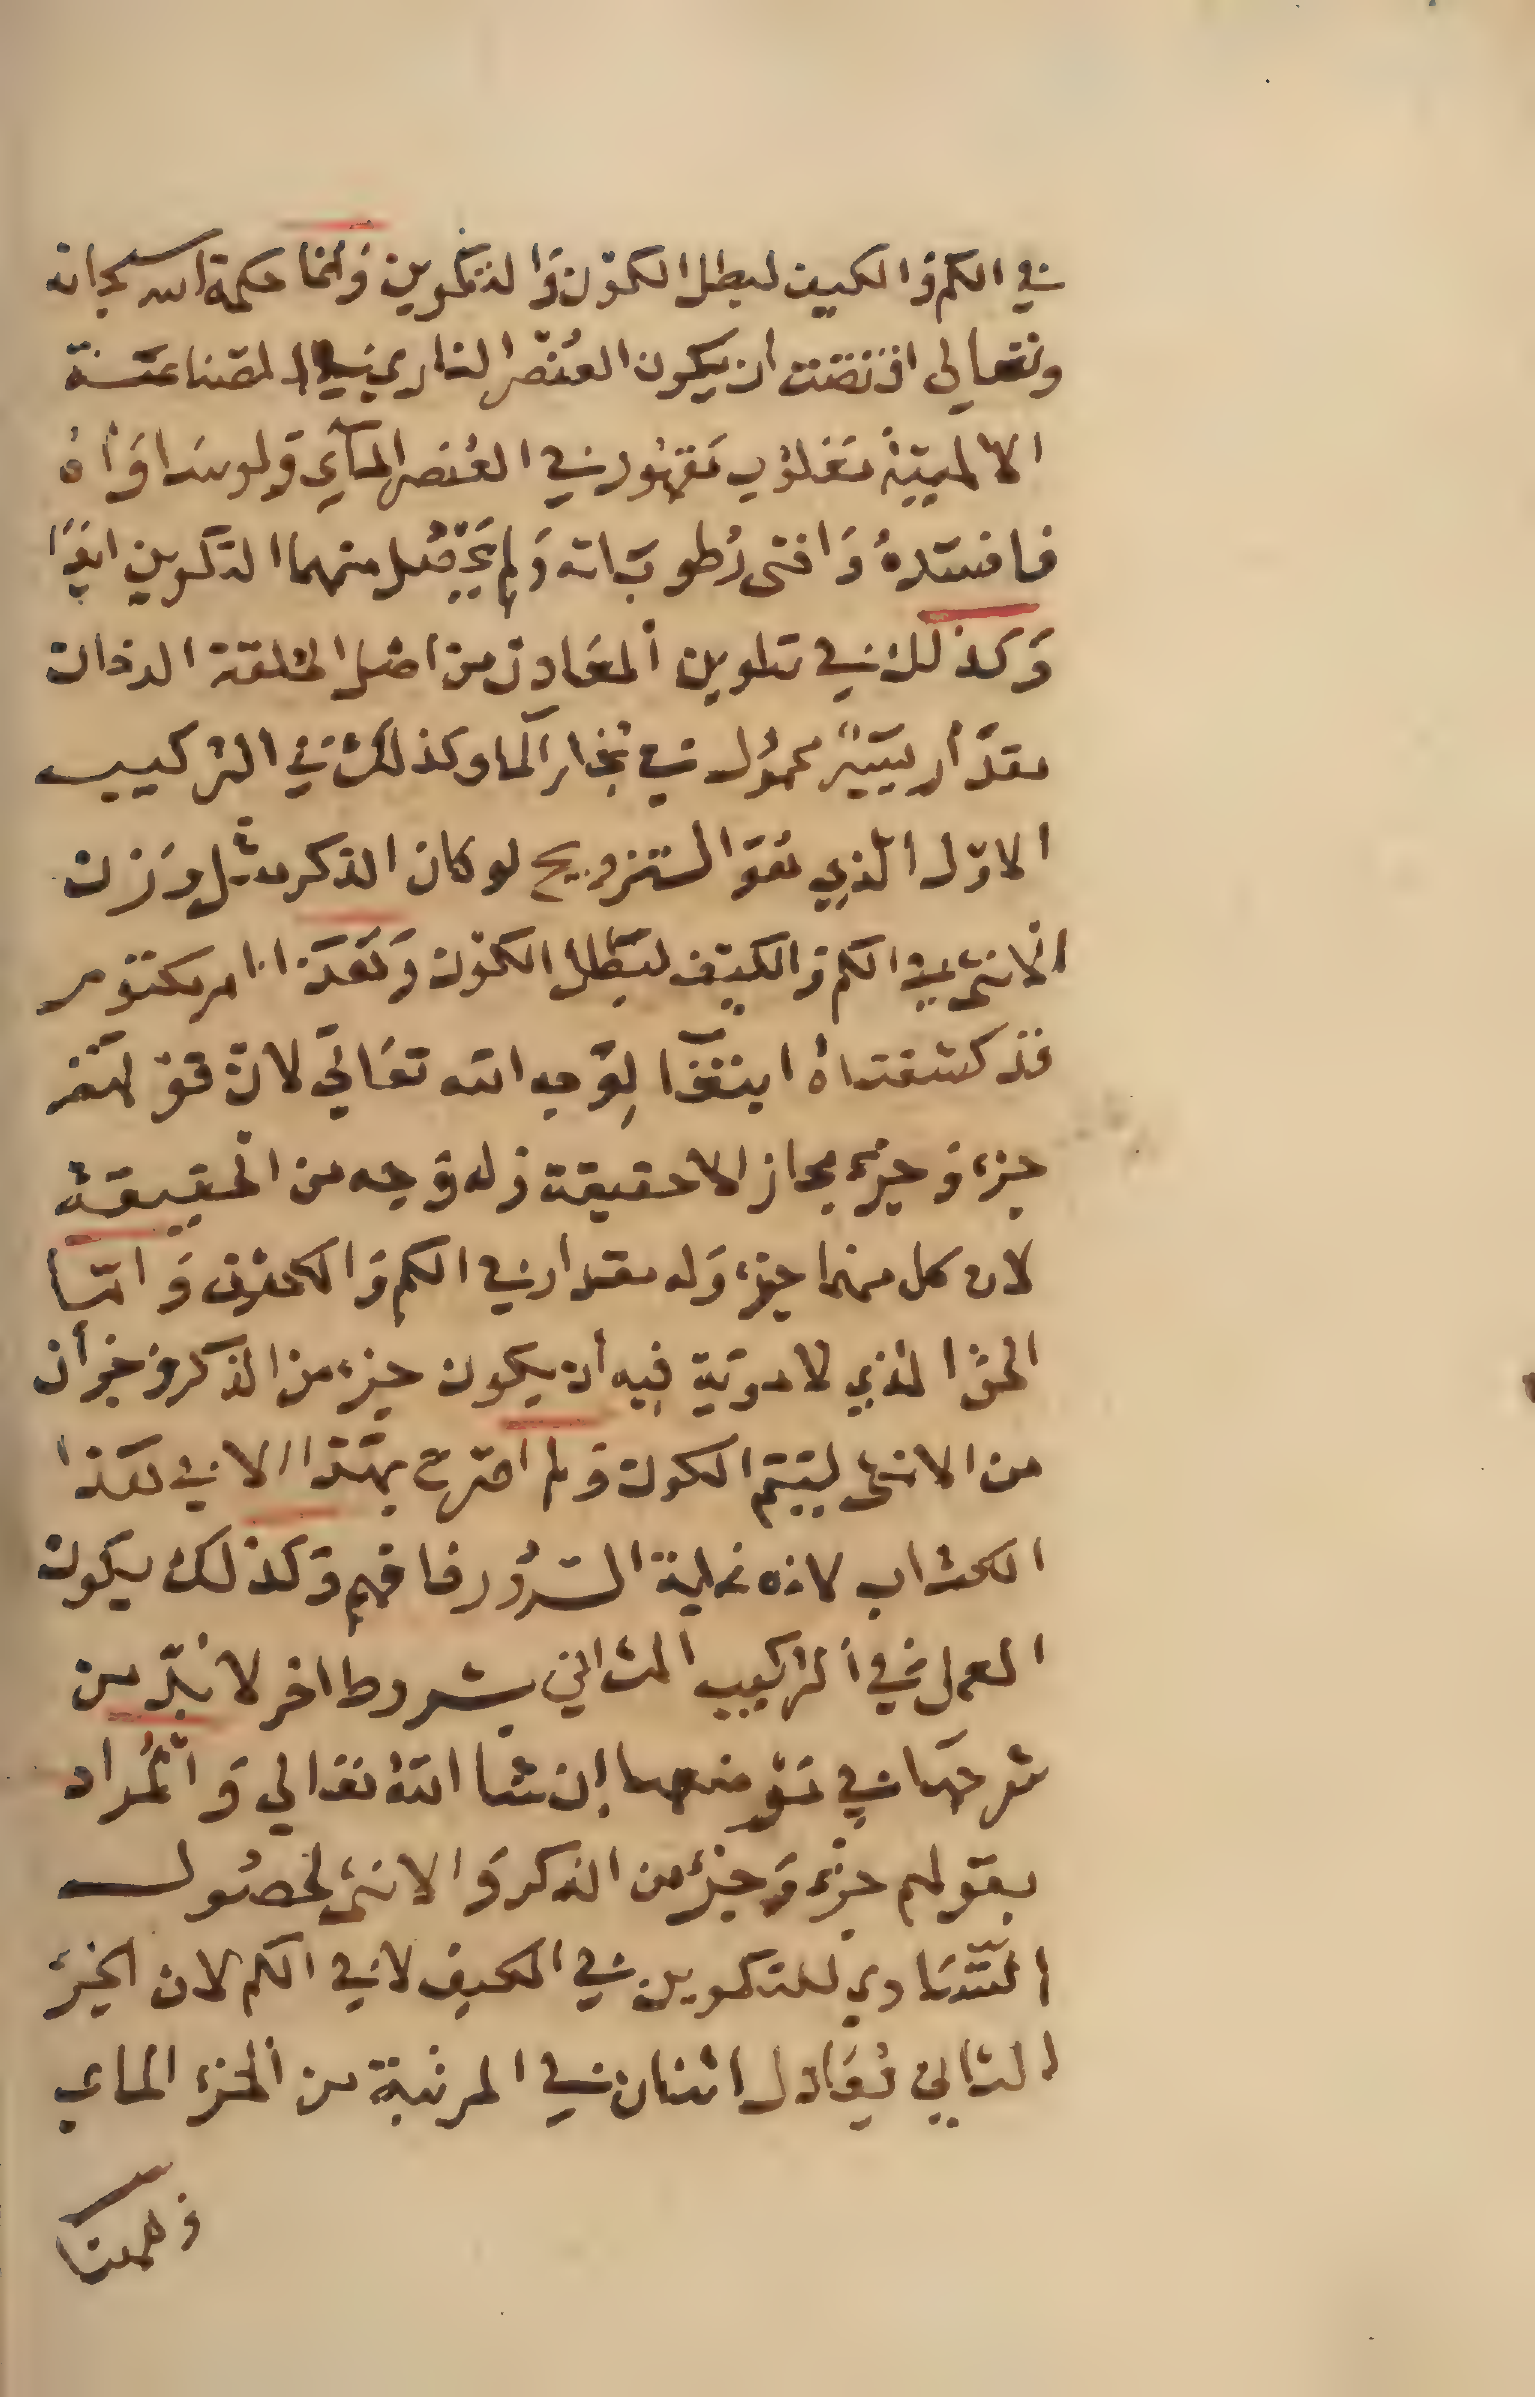 في الكم والكيف لبطل الكون والتكوين وانما حكمة الله سبحانه
وتعالى اقتضت ان يكون العنصر الناري في الصناعة
الالهيّة مغلوب مقهور في العنصر المآي ولو ساواه
فافسده وافنى رطوباته ولم يحصل منهما التكوين ايضًا
وكذلك في تلوين المعادن من اصل الخلقة الدخان
مقدار يسير محمول في بخار الما وكذلك في التركيب
الاوّل الذي هو التزويج لو كان الذكر مثل وزن
الانثى في الكم والكيف لبطل الكون وهذا امر مكتوم
قد كشفناه ابتغا لوجه الله تعالى لان قولهم
جزء وجزء مجاز لا حقيقة وله وجه من الحقيقة
لان كل منهما جزء وله مقدار في الكم والكيف واما
الحق الذي لا مرية فيه أن يكون جزء من الذكر وجزأن
من الانثى ليتم الكون ولم اصرح بهذا الا في هذا
الكتاب لانه نهاية السرور فافهم وكذلك يكون
العمل في التركيب الثاني بشروط اخر لا بدّ من
شرحها في موضعها إن شا الله تعالى والمراد
بقولهم جزء وجزء من الذكر والانثى لحصول
التساوي للتكوين في الكيف لا في الكم لان الجزء
الثاني يعادل اثنان في المرتبة من الجزء الماي
وهمنا